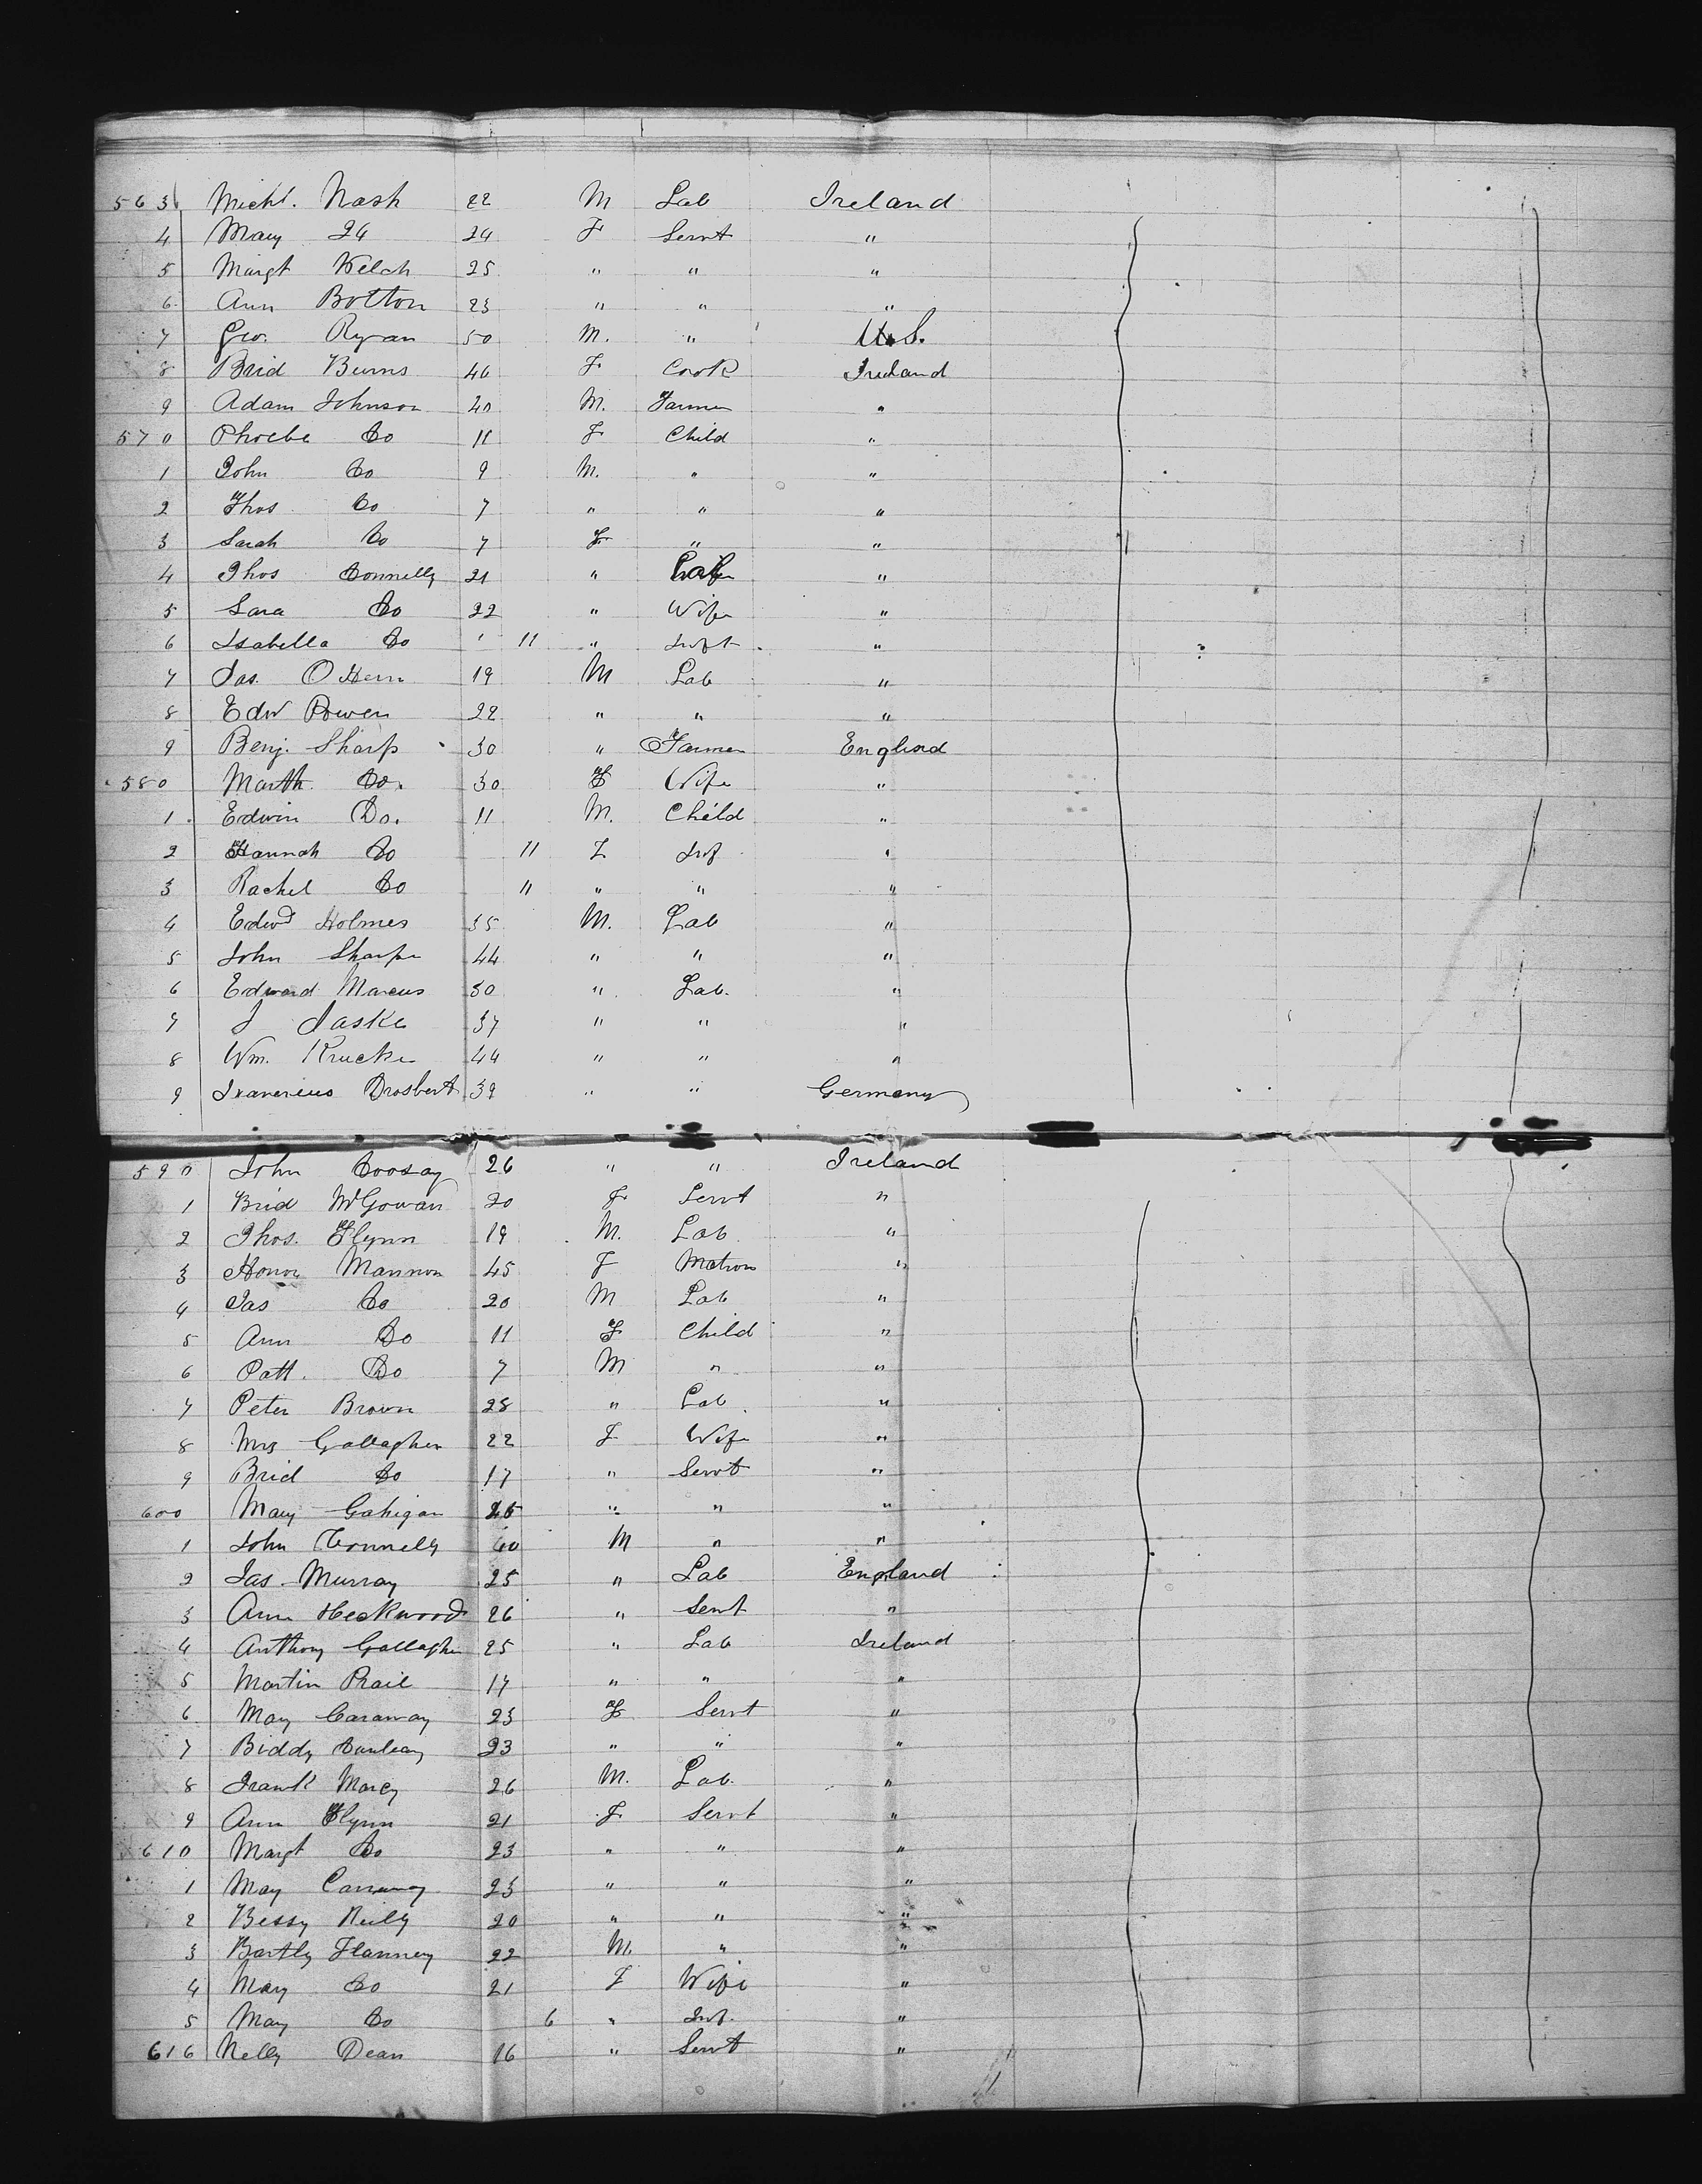 563 Michl. Nash 22 M Lab Ireland
4 Mary 24 24 F Servt "
5 Margt Welch 25 " " "
6 Ann Botton 23 " " "
7 Geo. Ryan 50 M. " U.S.
8 Brid Burns 46 F. Cook Ireland
9 Adam Johnson 40 M. Farmer "
570 Phoebe Do 11 F Child "
1 John Do 9 M. " "
2 Thos Do 7 " " "
3 Sarah Do 7 F " "
4 Thos Connelly 21 " "
5 Sara Do 22 " Wife "
6 Isabella Do 11 " Inft "
7 Jas. O Hern 19 M Lab "
8 Edw Power 22 " " "
9 Benj. Sharp 30 " Farmer England
580 Marth Do. 30 F Wife "
1 Edwin Do. 11 M. Child "
2 Hannah Do 11 F Inf "
3 Rachel Do 11 " " "
4 Edwd Holmes 35 M. Lab "
5 John Sharpe 44 " " "
6 Edward Marcus 30 " Lab. "
7 J Jaske 37 " " "
8 Wm. Krucke 44 " " "
9 Drosbert 39 " " Germany
590 John 26 " " Ireland
1 Brid McGowan 20 F Servt "
2 Thos. Flynn 19 M. Lab "
3 Honor Mannon 45 F Matron "
4 Jas Do 20 M Lab "
5 Ann Do 11 F Child "
6 Patt. Do 7 M " "
7 Peter Brown 28 " Lab "
8 Mrs Gallagher 22 F Wife "
9 Brid Do 17 " Servt "
600 Mary Gahigan " " "
1 John Connelly 60 M " "
2 Jas. Murray 25 " Lab England
3 Ann Heckwood 26 " Servt "
4 Anthony Gallagher 25 " Lab Ireland
5 Martin Prail 17 " " "
6 May Caraway 23 F Servt "
7 Biddy 23 " " "
8 Frank Marcy 26 M. Lab. "
9 Ann Flynn 21 F Servt "
610 Margt Do 23 " " "
1 May 23 " " "
2 Bessy Reily 20 " " "
3 Bartly Flannery 22 M. " "
4 May Do 21 F Wife "
5 May Do 6 " Inf. "
616 Nelly Dean 16 " Servt "